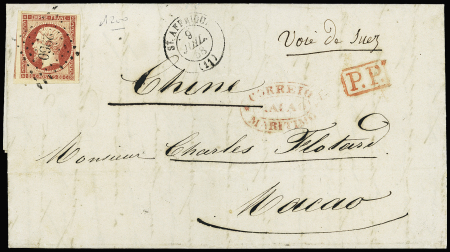 1200
EMPIRE FRANC.
ST AFFRIQUE
9
JUIL.
(11)
Voie de Suez
Chine
P.P.
CORREIO
MARITIMO
Monsieur Charles Flotard
Macao